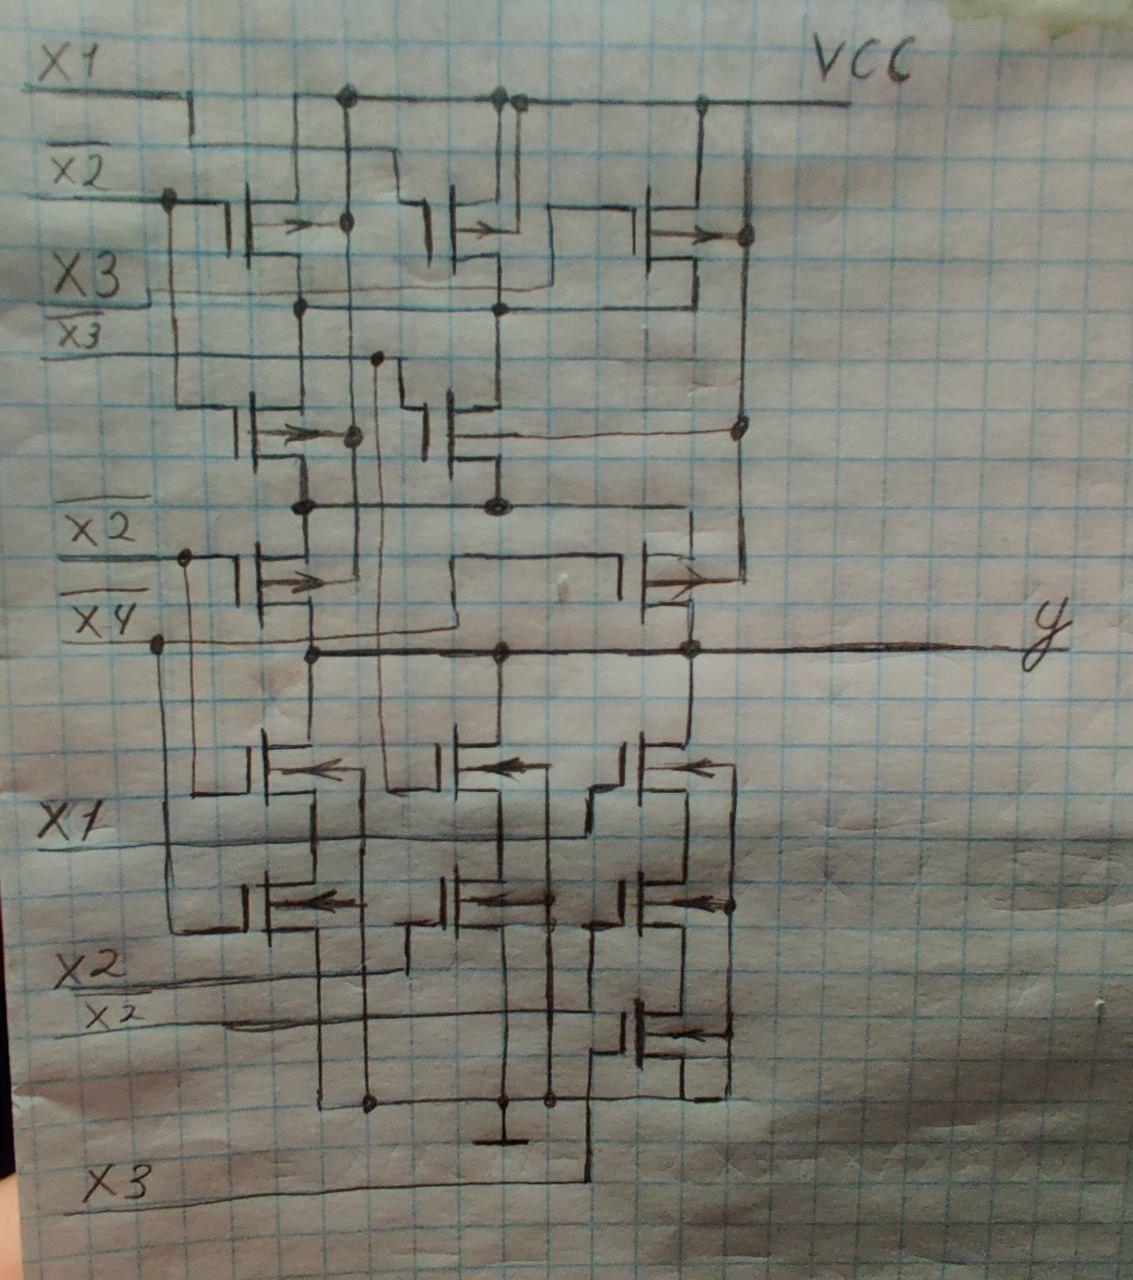 X1
VCC
X̅2̅
X3
X̅3̅
X̅2̅
X̅4̅
y
X1
X2
X̅2̅
X3